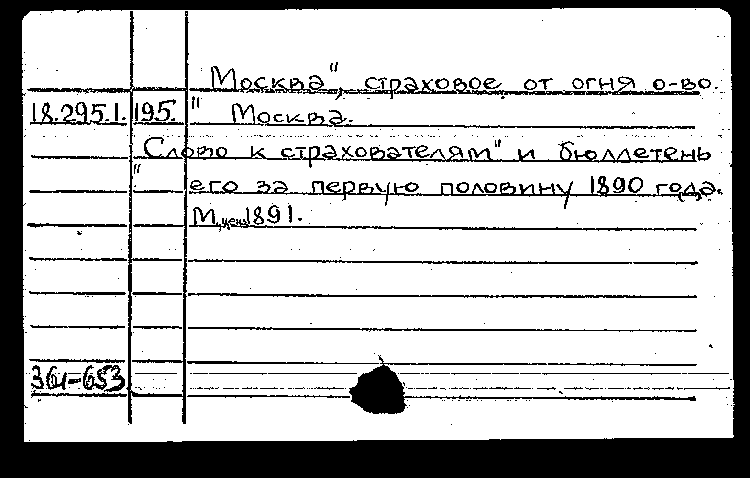 Москва", страховое от огня о-во.
18.295.1. 195. " Москва.
"Слово к страхователям" и бюллетень
его за первую половину 1890 года.
М., ценз 1891.
361-653